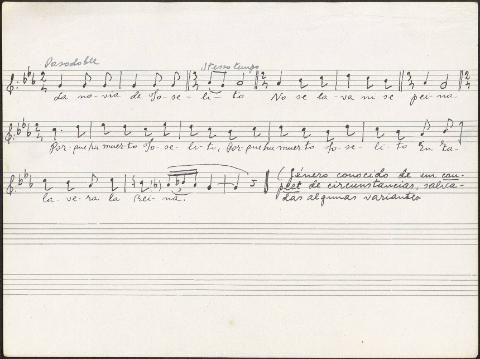 Pasodoble Istesso tempo
La no-via de Jo-se-li-to No se la-va ni se pei-na.
Por-que ha muerto Jo-se-li-to, Por-que ha muerto Jo-se-li-to En Ta-
la-ve-ra la Rei-na.
(Género conocido de un cou-
plet de circunstancias, salva-
das algunas variantes